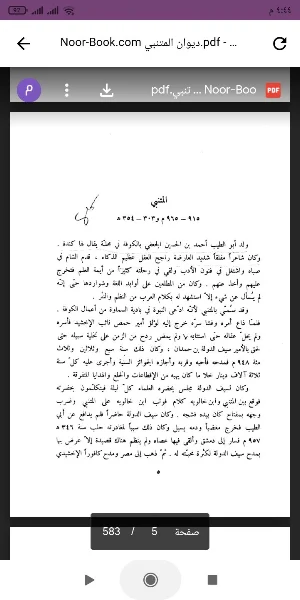 ٤:٤٤ م
Noor-Book.com ديوان المتنبي.pdf - ...
Noor-Boo ... تنبي.pdf
PDF
المتنبي
٩١٥ – ٩٦٥ م و ٣٠٣ – ٣٥٤ ه
ولد أبو الطيب أحمد بن الحسين الجعفي بالكوفة في محلة يقال لها كندة .
وكان شاعراً مفلقاً شديد العارضة راجح العقل عظيم الذكاء ، قدم الشام في
صباه واشتغل في فنون الأدب ولقي في رحلته كثيراً من أئمة العلم فتخرج
عليهم وأخذ عنهم . وكان من المطلعين على أوابد اللغة وشواردها حتى إنه
لم يُسأل عن شيء إلا استشهد له بكلام العرب من النظم والنثر .
وقد سُمّي بالمتنبي لأنه ادّعى النبوة في بادية السماوة من أعمال الكوفة .
فلما ذاع أمره وفشا سرّه خرج إليه لؤلؤ أمير حمص نائب الإخشيد فأسره
ولم يحلّ عقاله حتى استتابه . ولم يمض ردح من الزمن على تخلية سبيله حتى
لحق بالأمير سيف الدولة بن حمدان ، وكان ذلك سنة سبع وثلاثين وثلاث
مئة ٩٤٨ م فمدحه فأحبه وقربه وأجازه الجوائز السنية وأجرى عليه كلّ سنة
ثلاثة آلاف دينار خلا ما كان يهبه من الإقطاعات والخلع والهدايا المتفرقة .
وكان لسيف الدولة مجلس يحضره العلماء كلّ ليلة فيتكلمون بحضرته
فوقع بين المتنبي وابن خالويه كلام فوثب ابن خالويه على المتنبي وضرب
وجهه بمفتاح كان بيده فشجه . وكان سيف الدولة حاضراً فلم يدافع عن أبي
الطيب فخرج مغضباً ودمه يسيل وكان ذلك سبباً لمغادرته حلب سنة ٣٤٦ ه
٩٥٧ م فسار إلى دمشق وألقى فيها عصاه ولم ينظم هناك قصيدة إلا عرض بها
بمدح سيف الدولة لكثرة محبته له . ثمّ ذهب إلى مصر ومدح كافوراً الإخشيدي
٥
صفحة 5 / 583